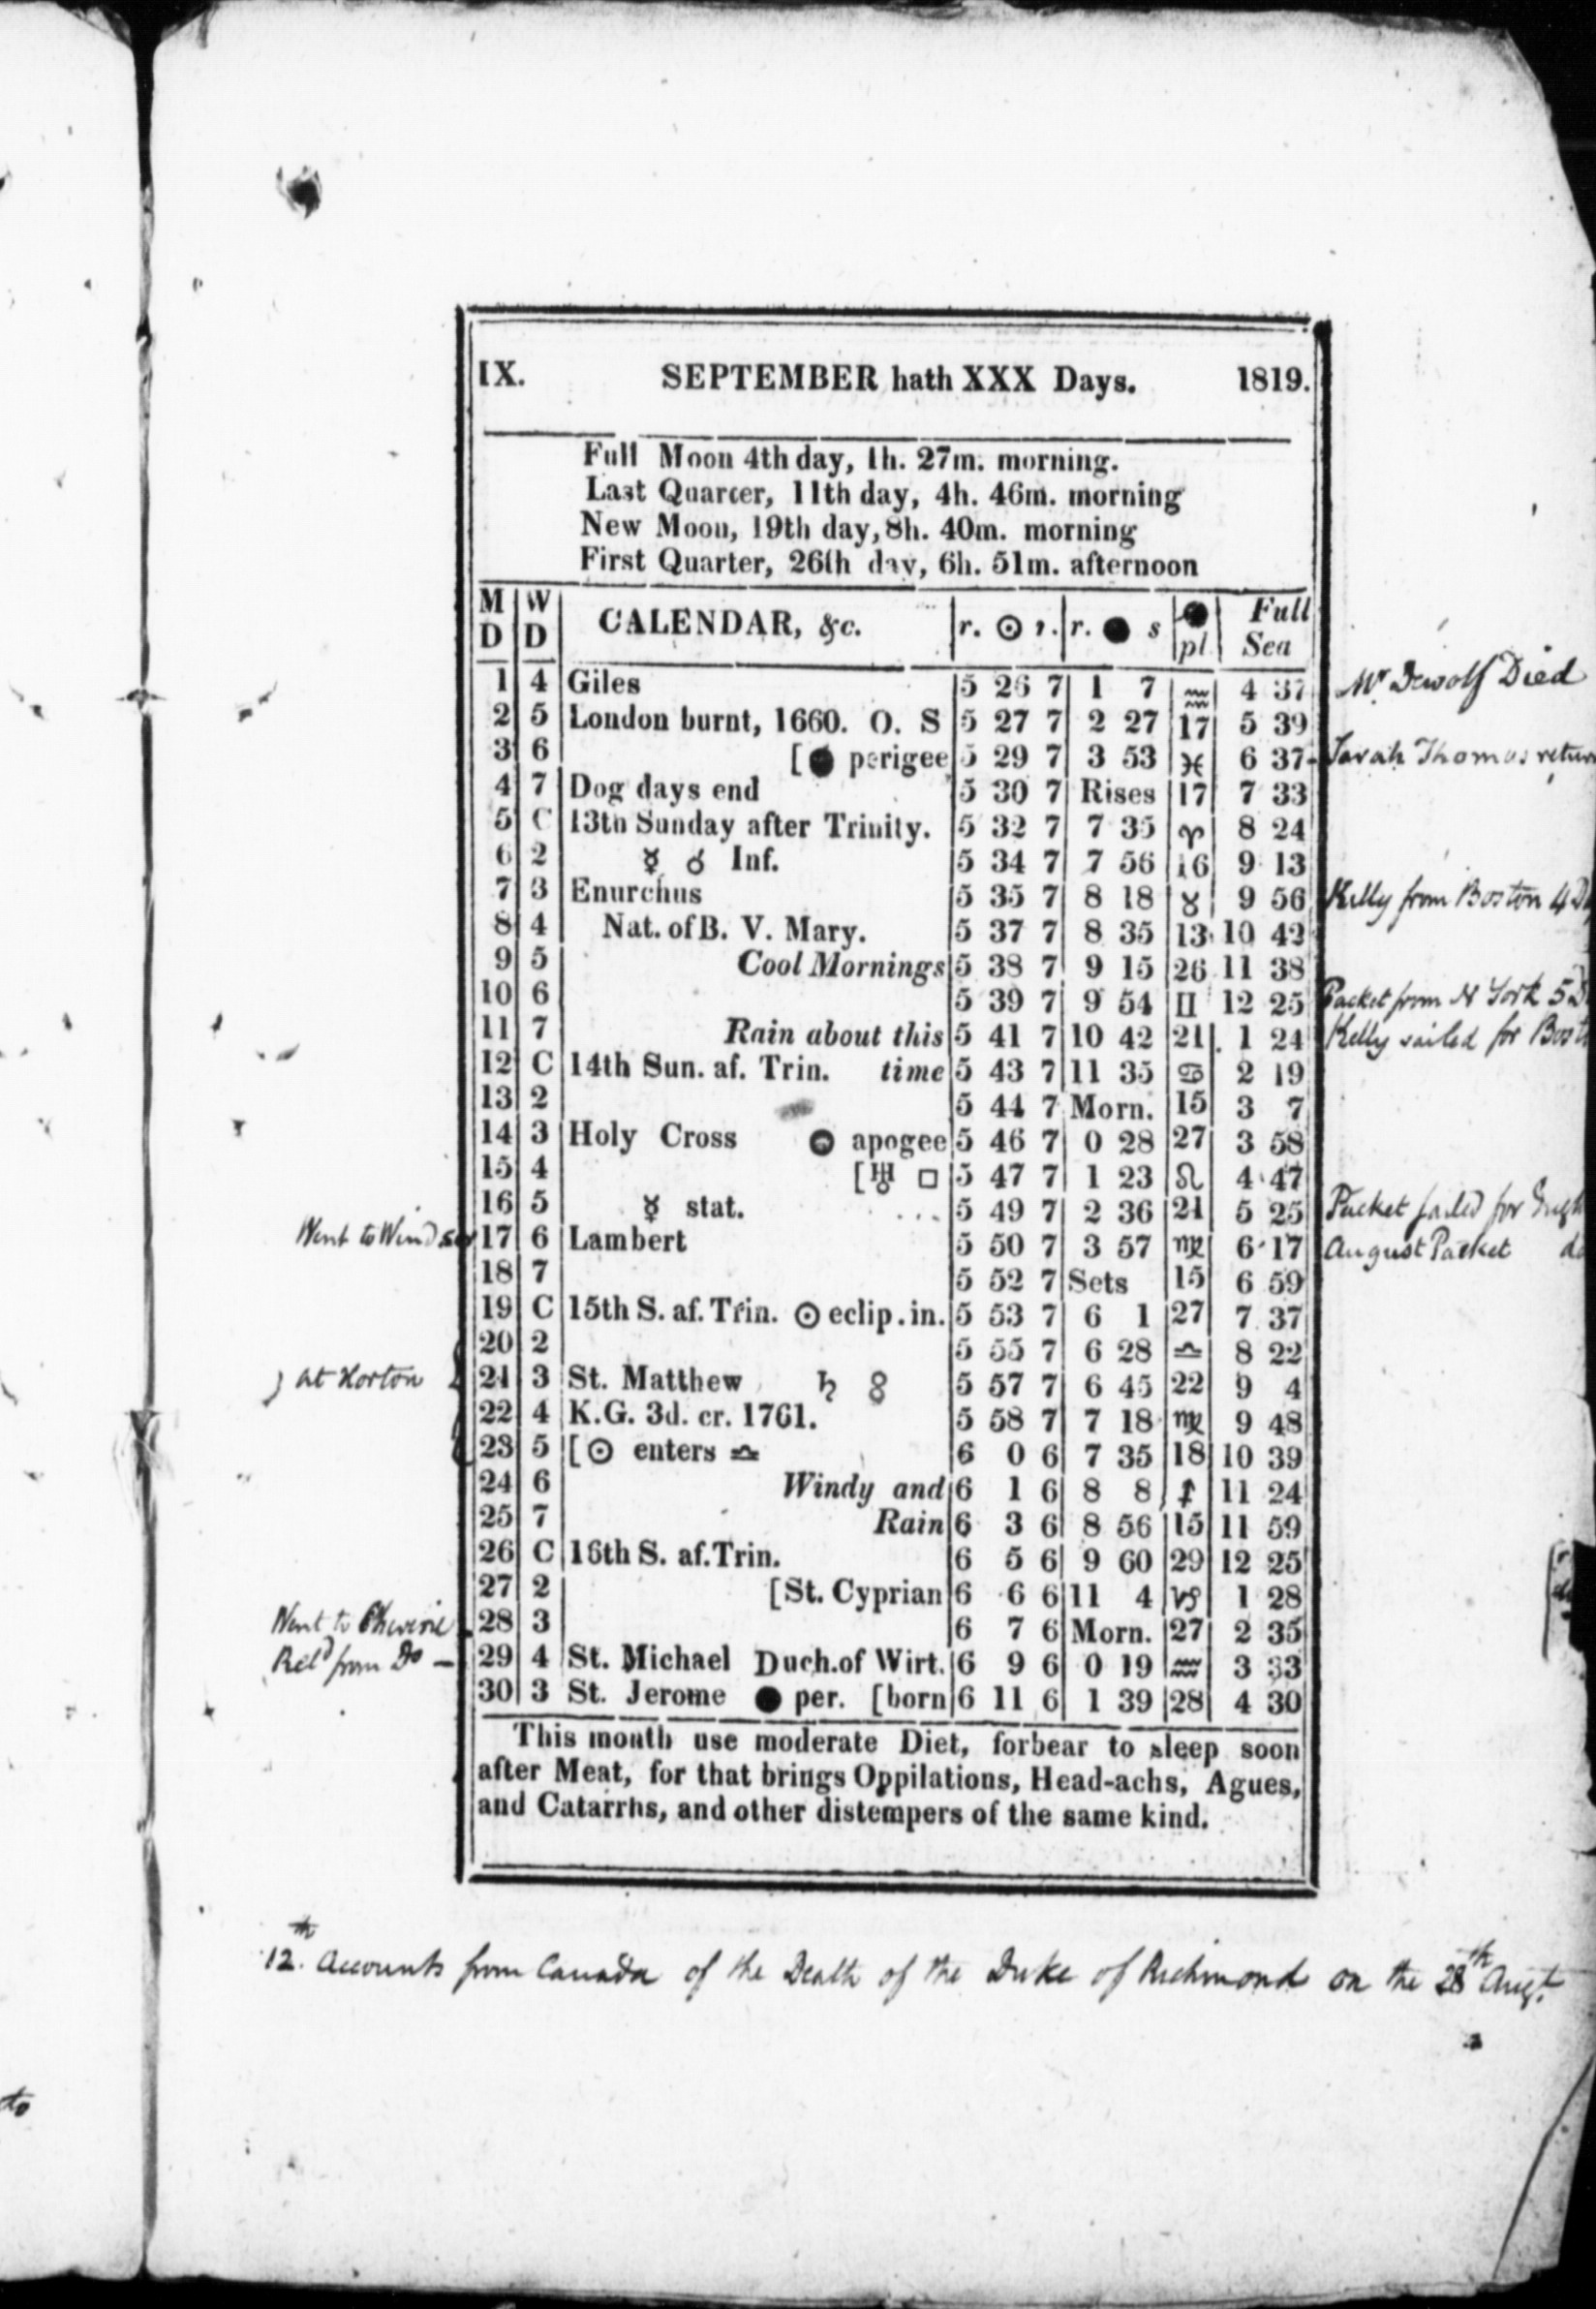 IX. SEPTEMBER hath XXX Days. 1819.
Full Moon 4th day, 1h. 27m. morning.
Last Quarter, 11th day, 4h. 46m. morning
New Moon, 19th day, 8h. 40m. morning
First Quarter, 26th day, 6h. 51m. afternoon
M D W D CALENDAR, &c. r. ☉ s. r. ● s ● pl. Full Sea
1 4 Giles 5 26 7 1 7 ♒ 4 37 Mr Dewolf Died
2 5 London burnt, 1660. O. S 5 27 7 2 27 17 5 39
3 6 [● perigee 5 29 7 3 53 ♓ 6 37 - Sarah Thomas return
4 7 Dog days end 5 30 7 Rises 17 7 33
5 C 13th Sunday after Trinity. 5 32 7 7 35 ♈ 8 24
6 2 ☿ ☌ Inf. 5 34 7 7 56 16 9 13
7 3 Enurchus 5 35 7 8 18 ♉ 9 56 Kelly from Boston 4 D
8 4 Nat. of B. V. Mary. 5 37 7 8 35 13 10 42
9 5 Cool Mornings 5 38 7 9 15 26 11 38
10 6 5 39 7 9 54 II 12 25 Packet from N York 5 D
11 7 Rain about this 5 41 7 10 42 21 1 24 Kelly sailed for Bost
12 C 14th Sun. af. Trin. time 5 43 7 11 35 ♋ 2 19
13 2 5 44 7 Morn. 15 3 7
14 3 Holy Cross ● apogee 5 46 7 0 28 27 3 58
15 4 [♅ □ 5 47 7 1 23 ♌ 4 47
16 5 ☿ stat. ... 5 49 7 2 36 21 5 25 Packet sailed for Engl
Went to Windsor 17 6 Lambert 5 50 7 3 57 ♍ 6 17 August Packet do
18 7 5 52 7 Sets 15 6 59
19 C 15th S. af. Trin. ☉ eclip. in. 5 53 7 6 1 27 7 37
20 2 5 55 7 6 28 ♎ 8 22
at Horton 21 3 St. Matthew ♄ ☍ 5 57 7 6 45 22 9 4
22 4 K.G. 3d. cr. 1761. 5 58 7 7 18 ♏ 9 48
23 5 [☉ enters ♎ 6 0 6 7 35 18 10 39
24 6 Windy and 6 1 6 8 8 ♐ 11 24
25 7 Rain 6 3 6 8 56 15 11 59
26 C 16th S. af. Trin. 6 5 6 9 60 29 12 25
27 2 [St. Cyprian 6 6 6 11 4 ♑ 1 28
Went to Cheverie 28 3 6 7 6 Morn. 27 2 35
Retd from Do - 29 4 St. Michael Duch. of Wirt. 6 9 6 0 19 ♒ 3 33
30 3 St. Jerome ● per. [born 6 11 6 1 39 28 4 30
This month use moderate Diet, forbear to sleep soon
after Meat, for that brings Oppilations, Head-achs, Agues,
and Catarrhs, and other distempers of the same kind.
12th. Accounts from Canada of the Death of the Duke of Richmond on the 28th Augt.
to